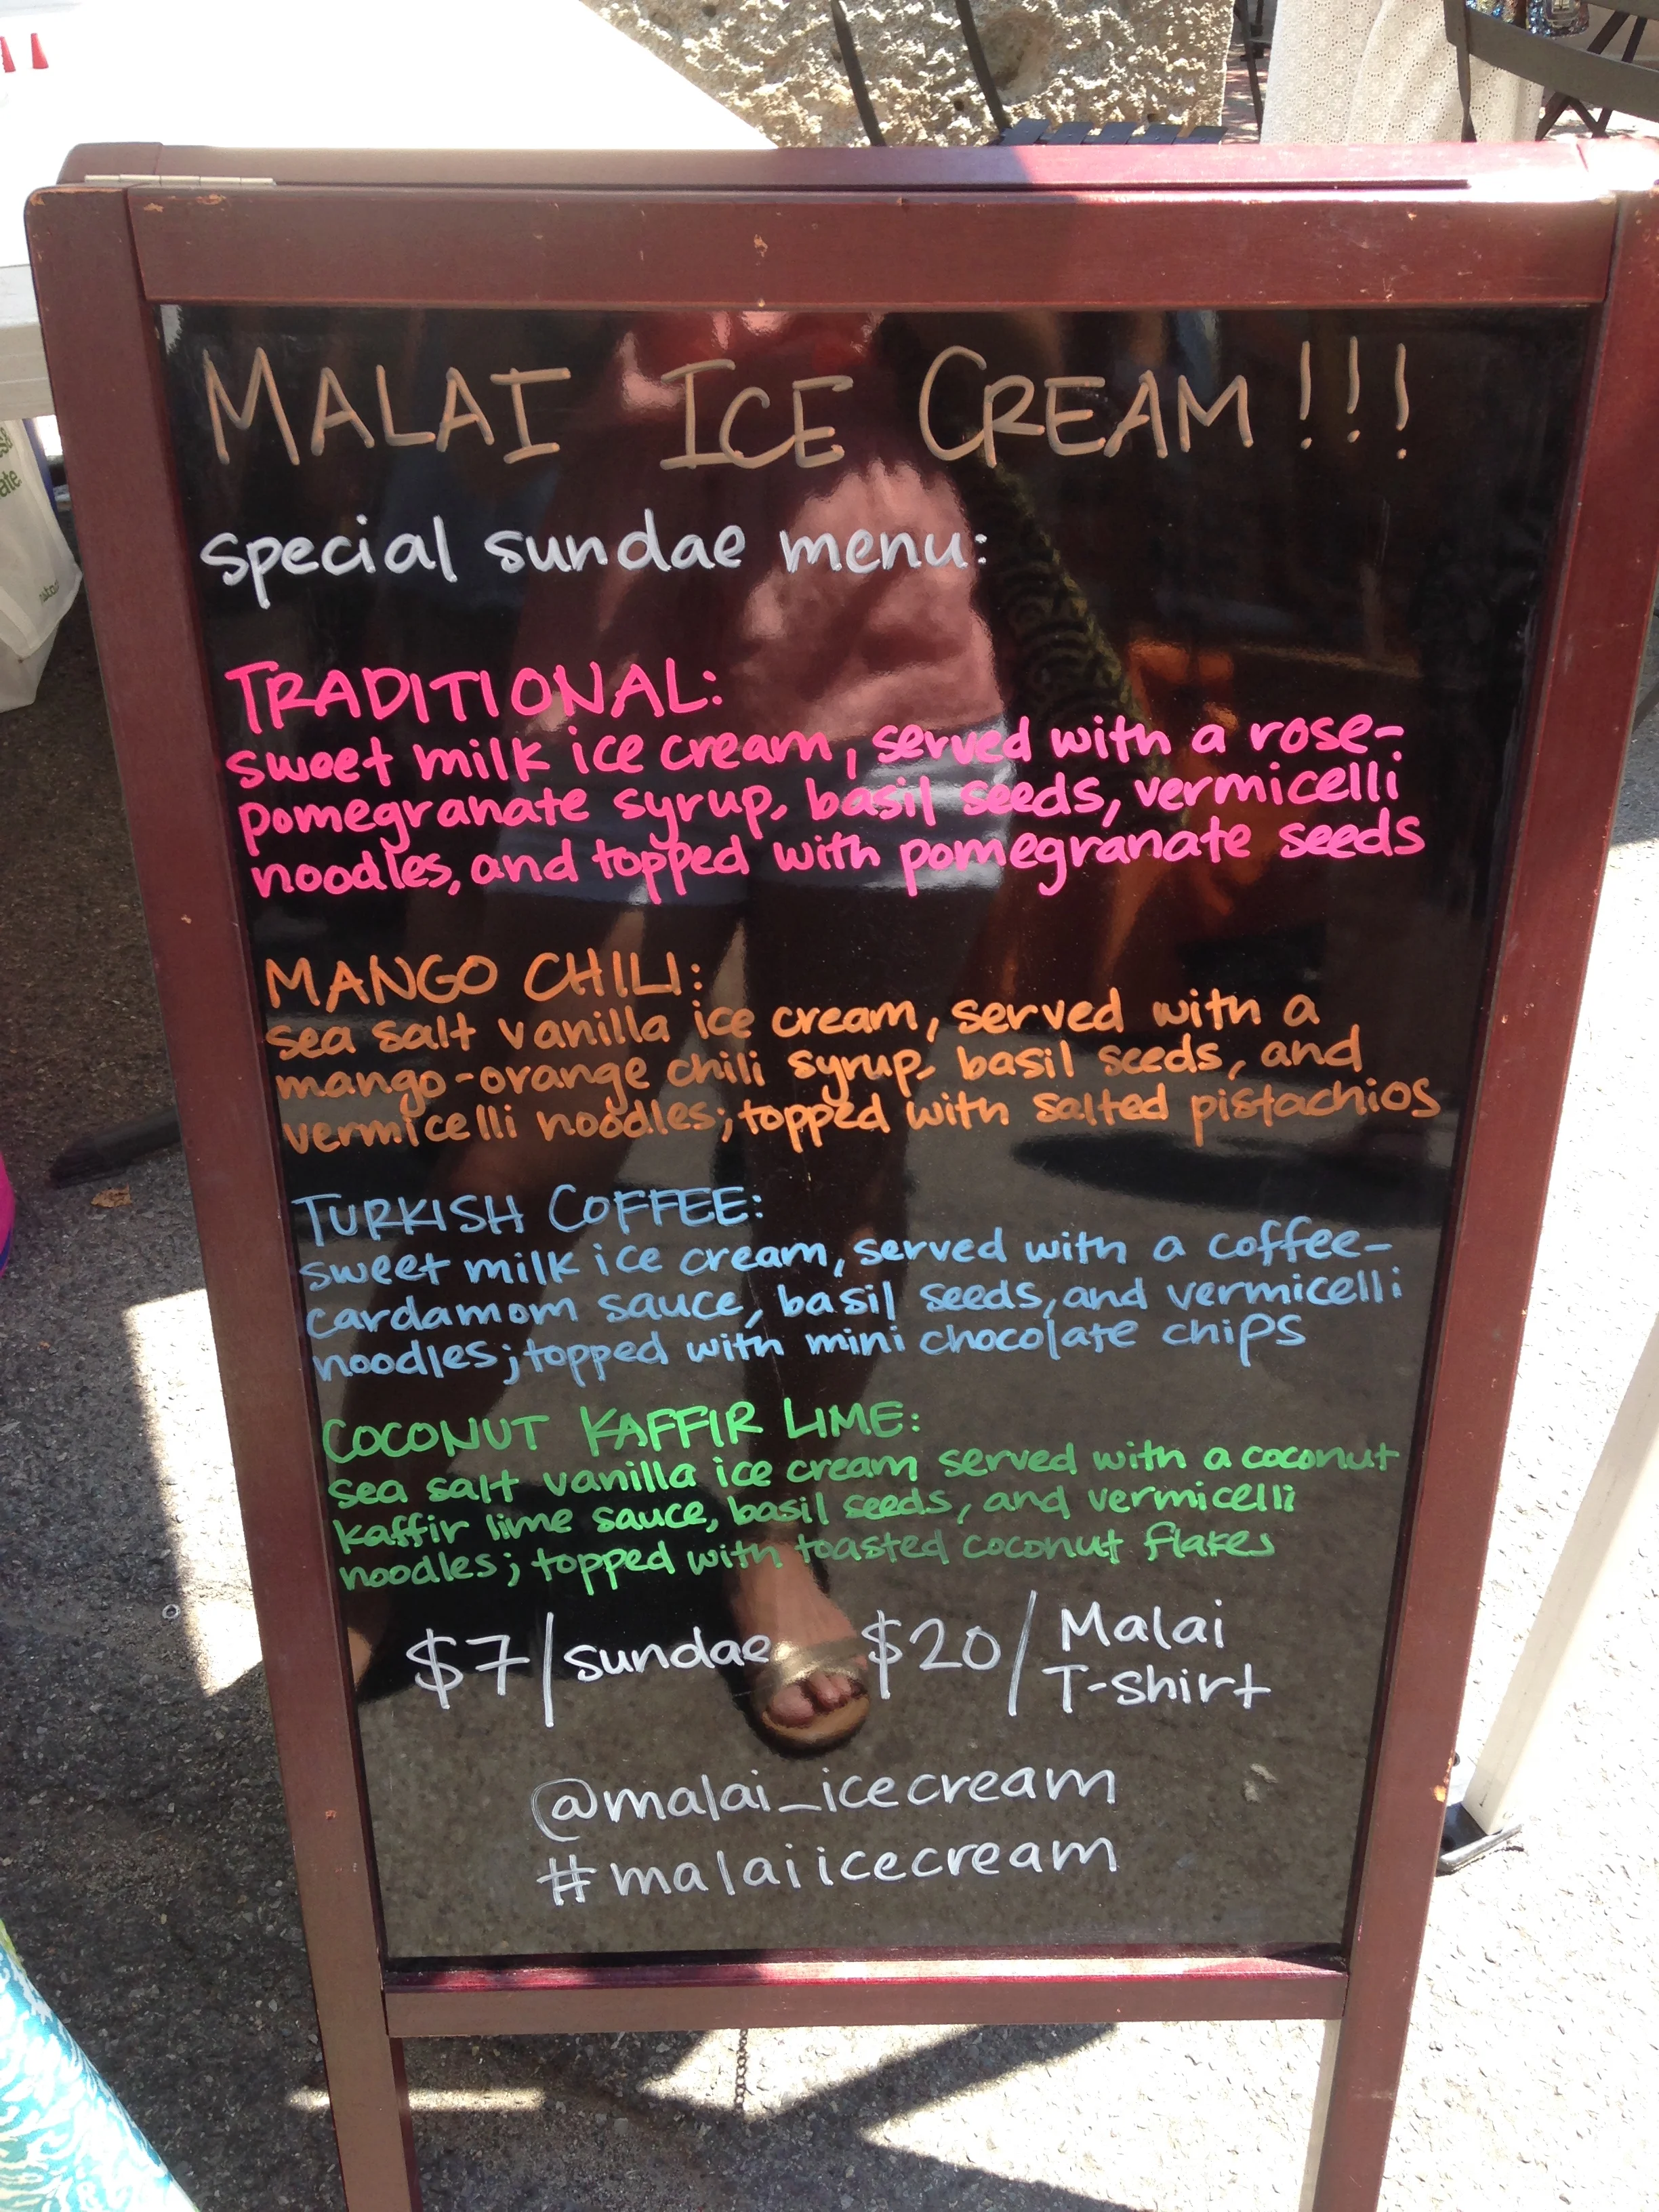 MALAI ICE CREAM!!!
special sundae menu:
TRADITIONAL:
sweet milk ice cream, served with a rose-
pomegranate syrup, basil seeds, vermicelli
noodles, and topped with pomegranate seeds
MANGO CHILI:
sea salt vanilla ice cream, served with a
mango-orange chili syrup, basil seeds, and
vermicelli noodles; topped with salted pistachios
TURKISH COFFEE:
sweet milk ice cream, served with a coffee-
cardamom sauce, basil seeds, and vermicelli
noodles; topped with mini chocolate chips
COCONUT KAFFIR LIME:
sea salt vanilla ice cream served with a coconut
kaffir lime sauce, basil seeds, and vermicelli
noodles; topped with toasted coconut flakes
$7/sundae $20/Malai
T-shirt
@malai_icecream
#malaiicecream